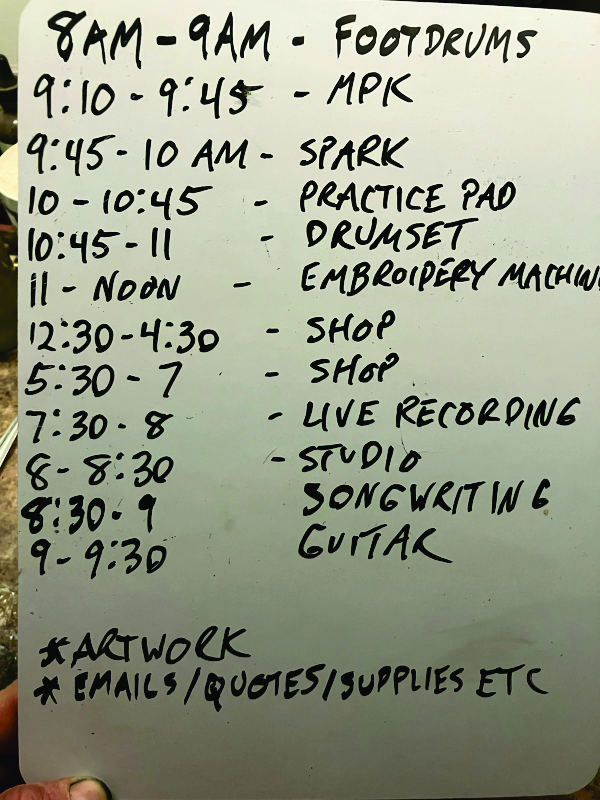 8AM - 9AM - FOOTDRUMS
9:10 - 9:45 - MPK
9:45 - 10 AM - SPARK
10 - 10:45 - PRACTICE PAD
10:45 - 11 - DRUMSET
11 - NOON - EMBROIDERY MACHIN
12:30 - 4:30 - SHOP
5:30 - 7 - SHOP
7:30 - 8 - LIVE RECORDING
8 - 8:30 - STUDIO
8:30 - 9 SONGWRITING
9 - 9:30 GUITAR
* ARTWORK
* EMAILS/QUOTES/SUPPLIES ETC